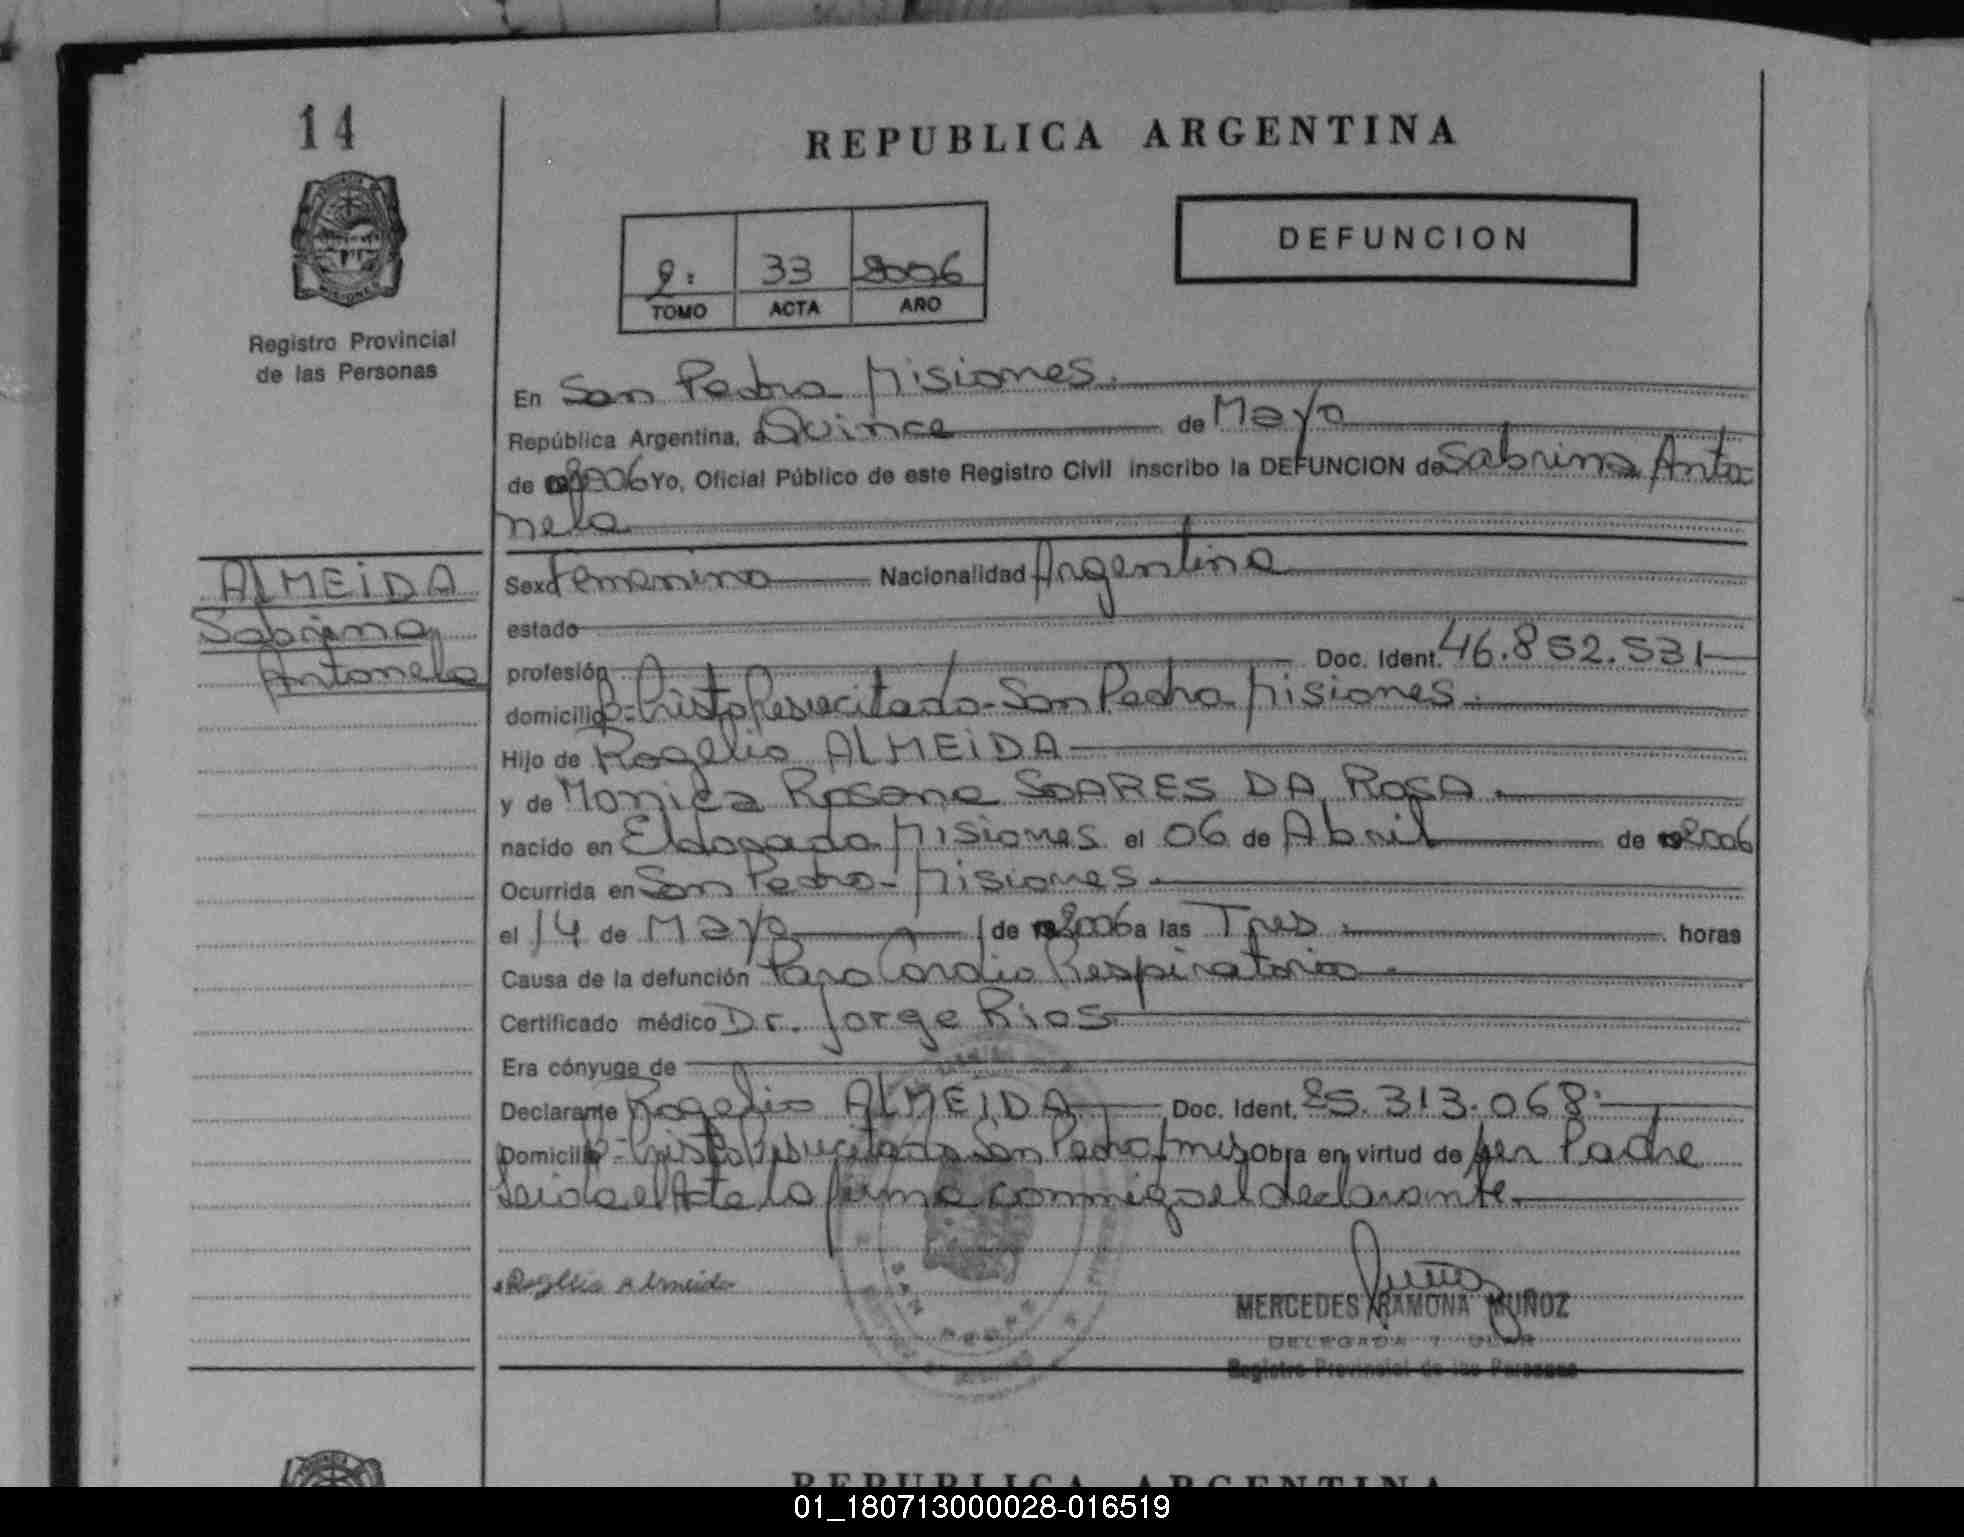 14
REPUBLICA ARGENTINA
DEFUNCION
2: 33 2006
TOMO ACTA AÑO
Registro Provincial
de las Personas
En San Pedro Misiones.
República Argentina, a Quince de Mayo
de 2006 Yo, Oficial Público de este Registro Civil inscribo la DEFUNCION de Sabrina Anto-
nela
ALMEIDA
Sabrina
Antonela
Sexo Femenino Nacionalidad Argentina
estado
profesión Doc. Ident. 46.852.531
domicilio Bº Cristo Resucitado - San Pedro Misiones.
Hijo de Rogelio ALMEIDA
y de Monica Rosane SOARES DA ROSA.
nacido en Eldorado Misiones el 06 de Abril de 2006
Ocurrida en San Pedro - Misiones.
el 14 de Mayo de 2006 a las Tres horas
Causa de la defunción Paro Cardio Respiratorio.
Certificado médico Dr. Jorge Rios
Era cónyuge de
Declarante Rogelio ALMEIDA Doc. Ident. 25.313.068
Domicilio Bº Cristo Resucitado San Pedro Mis. Obra en virtud de ser Padre
Leida el Acta la firma conmigo el declarante.
Rogelio Almeida
MERCEDES RAMONA MUÑOZ
DELEGADA
Registro Provincial de las Personas
SAN PEDRO
REPUBLICA ARGENTINA
01_180713000028-016519